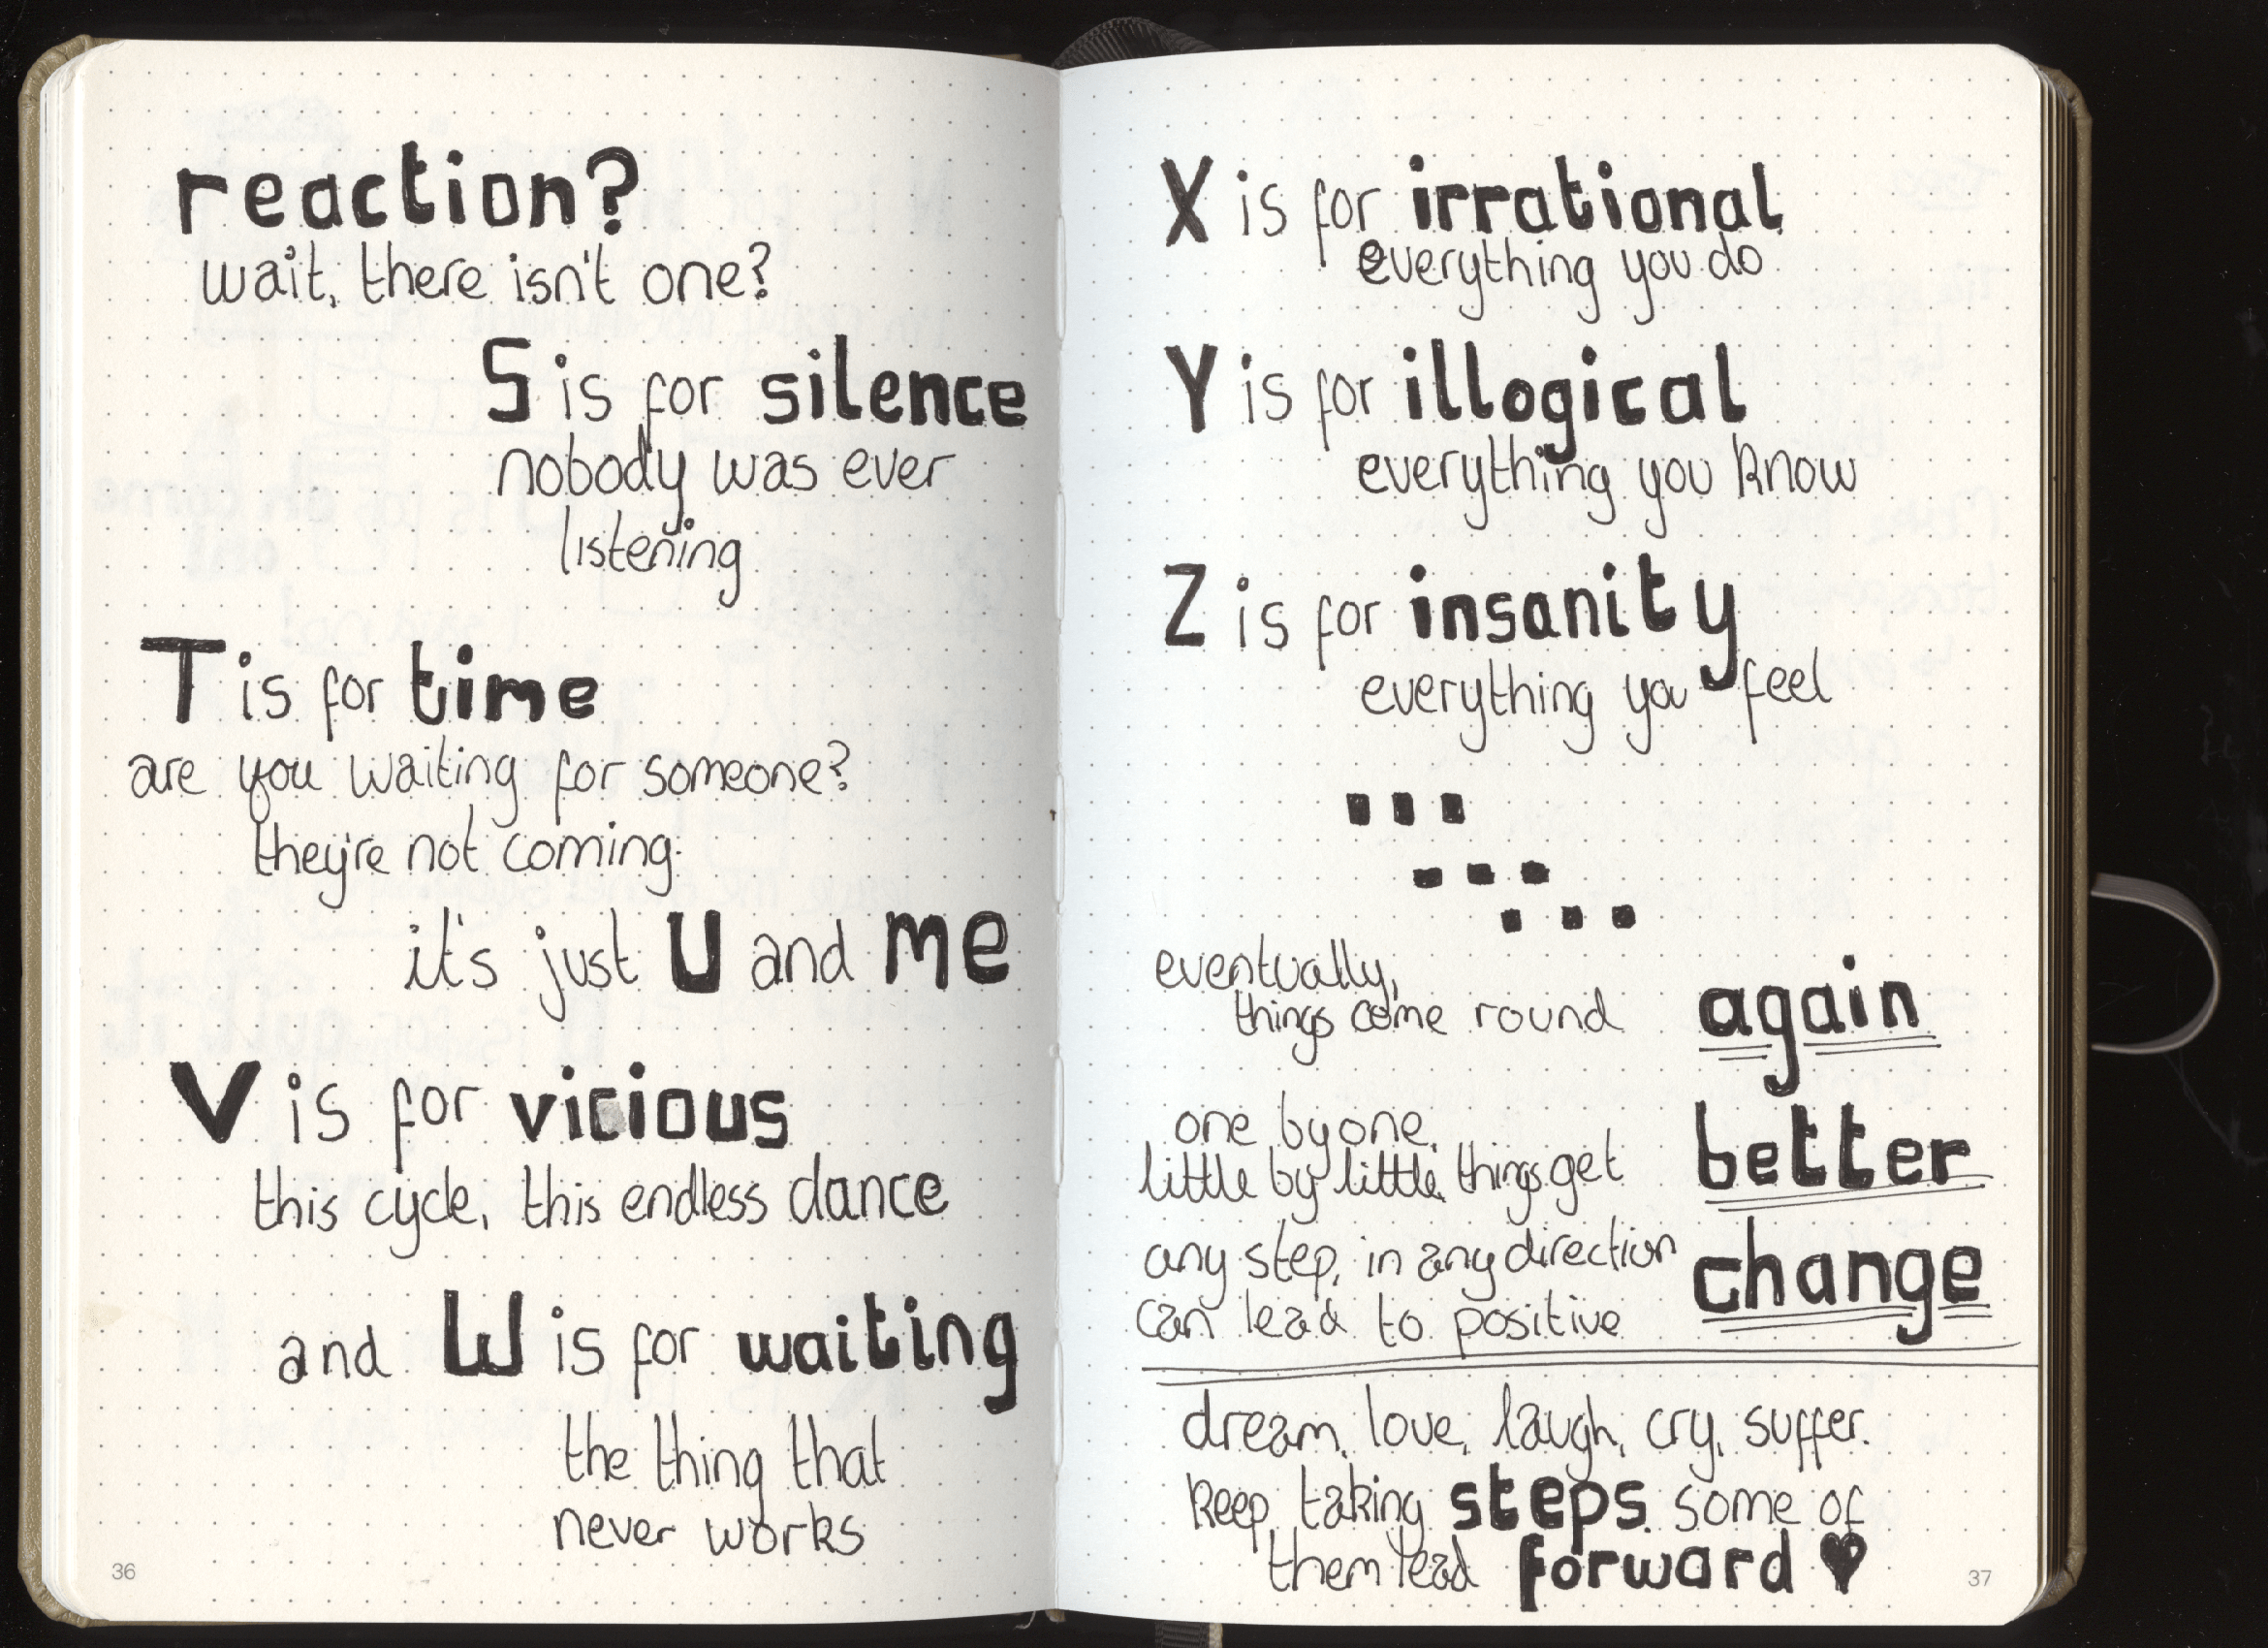 reaction?
wait, there isn't one?
S is for silence
nobody was ever
listening
T is for time
are you waiting for someone?
they're not coming.
it's just U and me
V is for vicious
this cycle, this endless dance
and W is for waiting
the thing that
never works
36
X is for irrational
everything you do
Y is for illogical
everything you know
Z is for insanity
everything you feel
...
...
...
eventually,
things come round again
one by one,
little by little, things get better
any step, in any direction
can lead to positive change
dream, love, laugh, cry, suffer.
keep taking steps. some of
them lead forward ♥
37